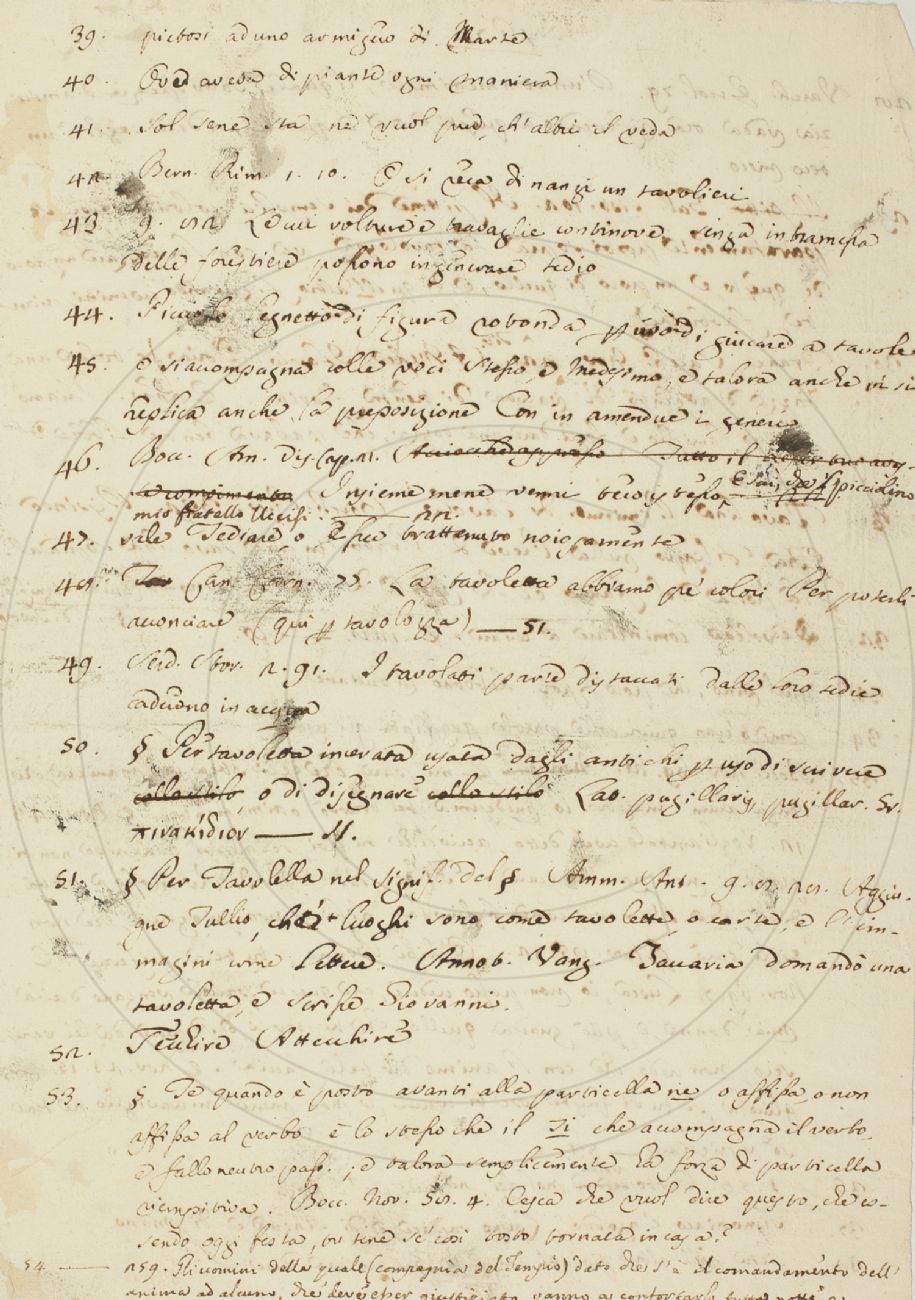 39. pietosi ad uno armigero di Marte
40. Ed aveva di piante ogni maniera
41. Sol sene sta ne vuol pur, ch'altri il veda
42. Bern. Rim. 1. 10. E si reca dinanzi un tavolieri
43. 9. Le cui volture e travaglie continove, senza intramessa
delle forestiere possono ingenerare tedio
44. Piccolo legnetto di figura rotonda per uso di giucare a tavole
45. e si accompagna colle voci Stesso, e Medesimo, e talora anche vi si
replica anche la preposizione Con in amendue i generi
46. Bocc. Am. Tutto il
Insieme mene venni teco stesso, E lui, che piccolino
mio fratello Uccisi
47. vale Tediare, o Esser trattenuto noiosamente
48. Can. Carn. 77. La tavoletta abbiamo pe' colori Per poterli
acconciare (qui per tavolozza) — 51.
49. Serd. Stor. 2. 91. I tavolati parte distaccati dalle loro sedie
caderono in acqua
50. § Per tavoletta incerata usata dagli antichi per uso di scrivere
collo stilo, o di disegnare collo stilo Lat. pugillares, pugillar. Gr.
πινακίδιον — 51.
51. § Per Tavolella nel signif. del § Amm. Ant. 9. Aggiu-
gne Tullio, che i luoghi sono come tavolette, o carte, e l'im-
magini come lettere. Annot. Vang. Zaccaria domandò una
tavoletta, e scrisse Giovanni.
52. Tecchire Attecchire
53. § Te quando è posto avanti alla particella ne o affissa, o non
affissa al verbo è lo stesso che il Ti che accompagna il verbo,
e fallo neutro pass.; e talora semplicemente ha forza di particella
riempitiva. Bocc. Nov. 50. 4. Cesca che vuol dire questo, che es-
sendo oggi festa, tu tene se' così tosto tornata in casa?
54 — 259. Gli uomini della quale (compagnia del Tempio) dato che s'è il comandamento dell'
anima ad alcuno, che deve esser giustiziato vanno a confortarlo tutta notte